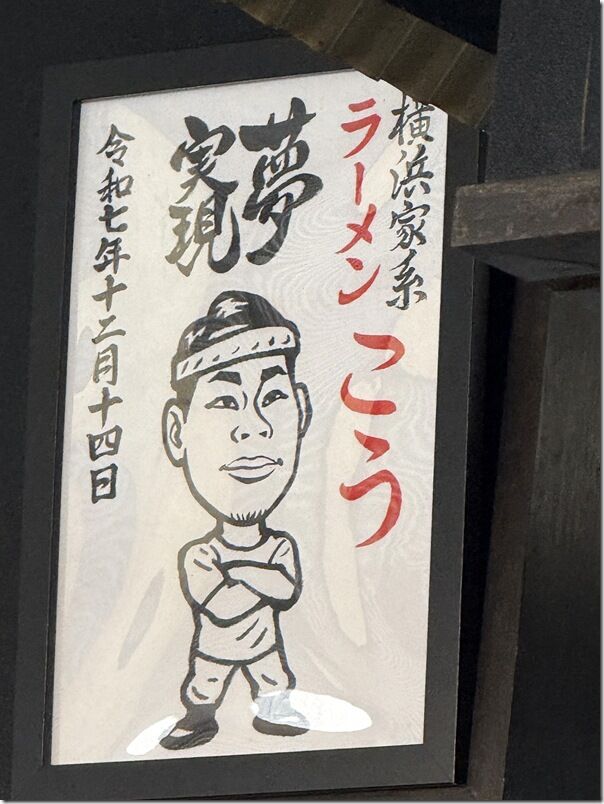 横浜家系
ラーメン こう
夢
実現
令和七年十二月十四日